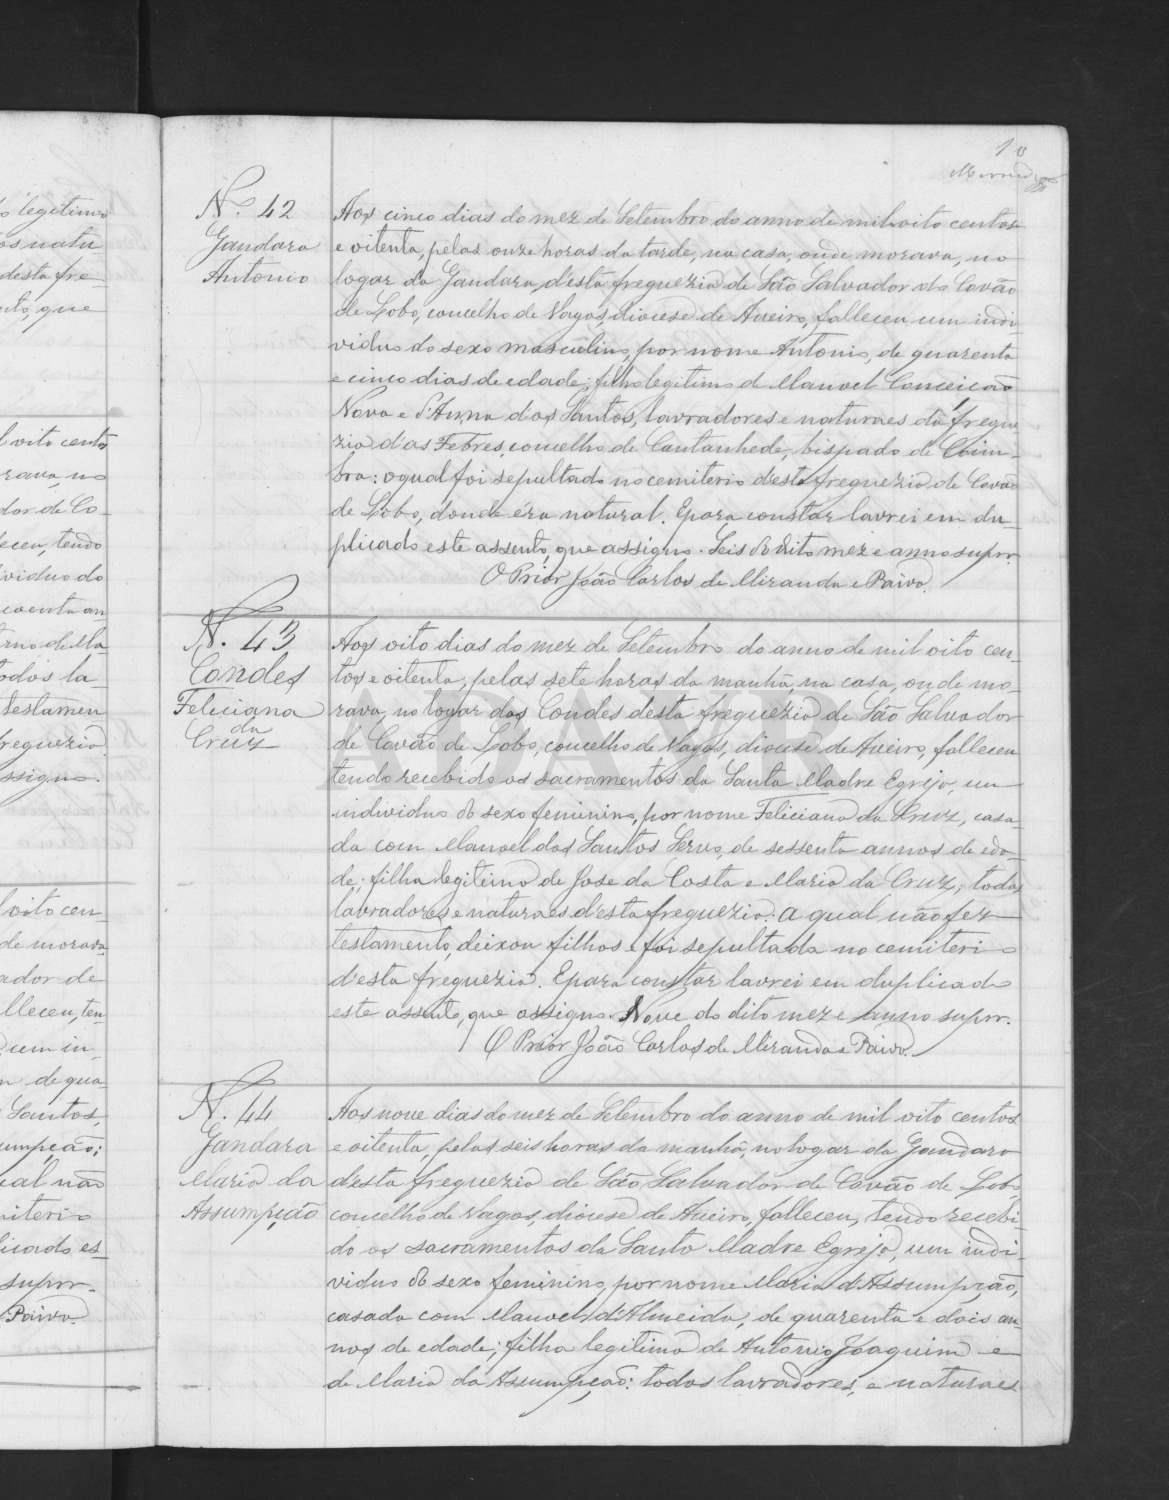 10
Mirand
N.º 42
Gandara
Antonio
Aos cinco dias do mez de Setembro do anno de mil oito centos
e oitenta, pelas onze horas da tarde, na casa, onde morava, no
logar da Gandara, d'esta freguezia de São Salvador do Covão
de Lobo, concelho de Vagos, diocese de Aveiro, falleceu um indi-
viduo do sexo masculino, por nome Antonio, de quarenta
e cinco dias de edade; filho legitimo de Manoel Conceição
Novo e d'Anna dos Santos, lavradores e naturaes da fregue-
zia das Febres, concelho de Cantanhede, bispado de Coim-
bra: o qual foi sepultado no cemiterio d'esta freguezia de Covão
de Lobo, donde era natural. E para constar lavrei em du-
plicado este assento, que assigno. Seis do dito mez e anno supr.
O Prior João Carlos de Miranda e Paiva.
N. 43
Condes
Feliciana
da
Cruz
Aos oito dias do mez de Setembro do anno de mil oito cen-
tos e oitenta, pelas sete horas da manhã, na casa, onde mo-
rava, no logar dos Condes desta freguezia de São Salvador
de Covão de Lobo, concelho de Vagos, diocese de Aveiro, falleceu
tendo recebido os sacramentos da Santa Madre Egreja, um
individuo do sexo feminino, por nome Feliciana da Cruz, casa-
da com Manoel dos Santos Servo, de sessenta annos de eda-
de; filha legitima de Jose da Costa e Maria da Cruz; todos
lavradores e naturaes d'esta freguezia. A qual não fez
testamento, deixou filhos e foi sepultada no cemiterio
d'esta freguezia. E para constar lavrei em duplicado
este assento, que assigno. Nove do dito mez e anno supr.
O Prior João Carlos de Miranda e Paiva.
N. 44
Gandara
Maria da
Assumpção
Aos nove dias do mez de Setembro do anno de mil oito centos
e oitenta, pelas seis horas da manhã, no logar da Gandara
d'esta freguezia de São Salvador de Covão de Lobo,
concelho de Vagos, diocese de Aveiro, falleceu, tendo recebi-
do os sacramentos da Santa Madre Egreja, um indi-
viduo do sexo feminino, por nome Maria d'Assumpção,
casada com Manoel d'Almeida, de quarenta e dois an-
nos de edade; filha legitima de Antonio Joaquim e
de Maria da Assumpção: todos lavradores, e naturaes
ADAVR